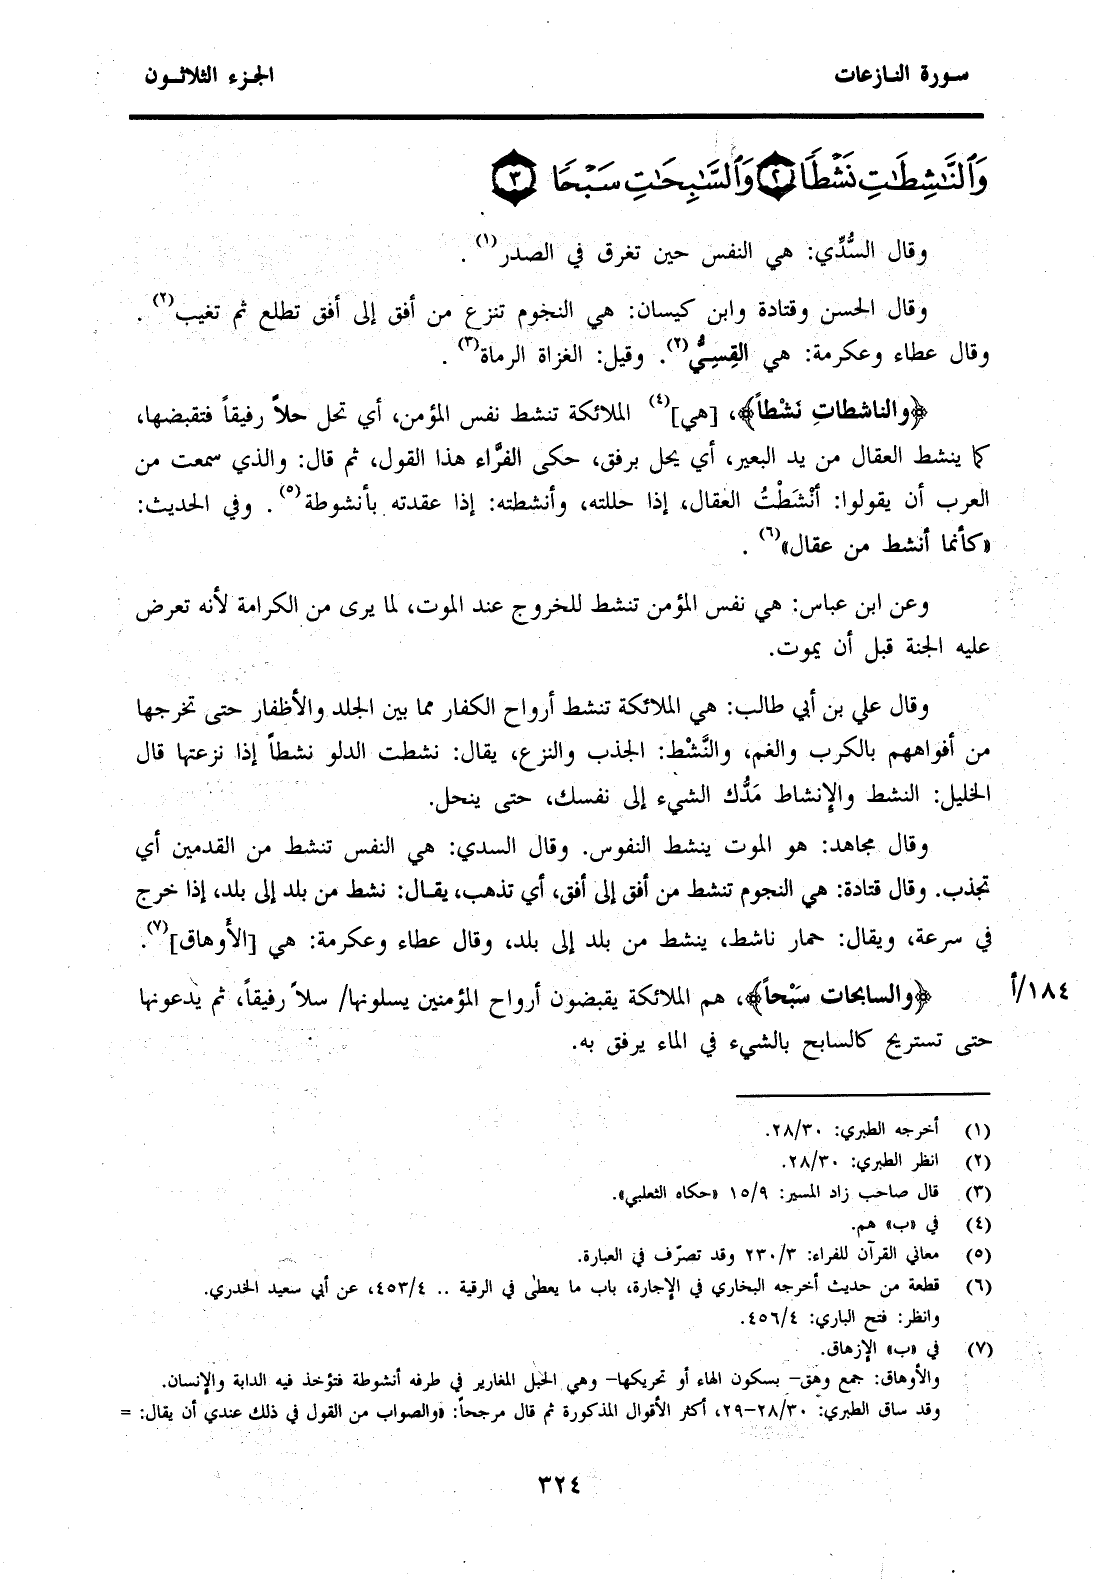 سورة النازعات
الجزء الثلاثون
وَٱلنَّـٰشِطَـٰتِ نَشْطًا ٢ وَٱلسَّـٰبِحَـٰتِ سَبْحًا ٣
وقال السُّدِّي: هي النفس حين تغرق في الصدر(١) .
وقال الحسن وقتادة وابن كيسان: هي النجوم تنزع من أفق إلى أفق تطلع ثم تغيب(٢) .
وقال عطاء وعكرمة: هي القِسِيُّ(٢). وقيل: الغزاة الرماة(٣) .
﴿والناشطاتِ نَشْطاً﴾، [هي](٤) الملائكة تنشط نفس المؤمن، أي تحل حلاً رفيقاً فتقبضها،
كما ينشط العقال من يد البعير، أي يحل برفق، حكى الفرَّاء هذا القول، ثم قال: والذي سمعت من
العرب أن يقولوا: أنْشَطْتُ العقال، إذا حللته، وأنشطته: إذا عقدته بأنشوطة(٥) . وفي الحديث:
«كأنما أنشط من عقال»(٦) .
وعن ابن عباس: هي نفس المؤمن تنشط للخروج عند الموت، لما يرى من الكرامة لأنه تعرض
عليه الجنة قبل أن يموت.
وقال علي بن أبي طالب: هي الملائكة تنشط أرواح الكفار مما بين الجلد والأظفار حتى تخرجها
من أفواههم بالكرب والغم، والنَّشْط: الجذب والنزع، يقال: نشطت الدلو نشطاً إذا نزعتها قال
الخليل: النشط والإنشاط مَدُّك الشيء إلى نفسك، حتى ينحل.
وقال مجاهد: هو الموت ينشط النفوس. وقال السدي: هي النفس تنشط من القدمين أي
تجذب. وقال قتادة: هي النجوم تنشط من أفق إلى أفق، أي تذهب، يقال: نشط من بلد إلى بلد، إذا خرج
في سرعة، ويقال: حمار ناشط، ينشط من بلد إلى بلد، وقال عطاء وعكرمة: هي [الأَوهاق](٧).
﴿والسابحات سَبْحاً﴾، هم الملائكة يقبضون أرواح المؤمنين يسلونها/ سلاً رفيقاً، ثم يدعونها
١٨٤/أ
حتى تستريح كالسابح بالشيء في الماء يرفق به.
(١) أخرجه الطبري: ٢٨/٣٠.
(٢) انظر الطبري: ٢٨/٣٠.
(٣) قال صاحب زاد المسير: ١٥/٩ «حكاه الثعلبي».
(٤) في «ب» هم.
(٥) معاني القرآن للفراء: ٢٣٠/٣ وقد تصرّف في العبارة.
(٦) قطعة من حديث أخرجه البخاري في الإجارة، باب ما يعطى في الرقية .. ٤٥٣/٤، عن أبي سعيد الخدري.
وانظر: فتح الباري: ٤٥٦/٤.
(٧) في «ب» الإزهاق.
والأوهاق: جمع وهَق– بسكون الهاء أو تحريكها– وهي الحَبْل المغارير في طرفه أنشوطة فتؤخذ فيه الدابة والإنسان.
وقد ساق الطبري: ٢٨/٣٠–٢٩، أكثر الأقوال المذكورة ثم قال مرجحاً: «والصواب من القول في ذلك عندي أن يقال: =
٣٢٤